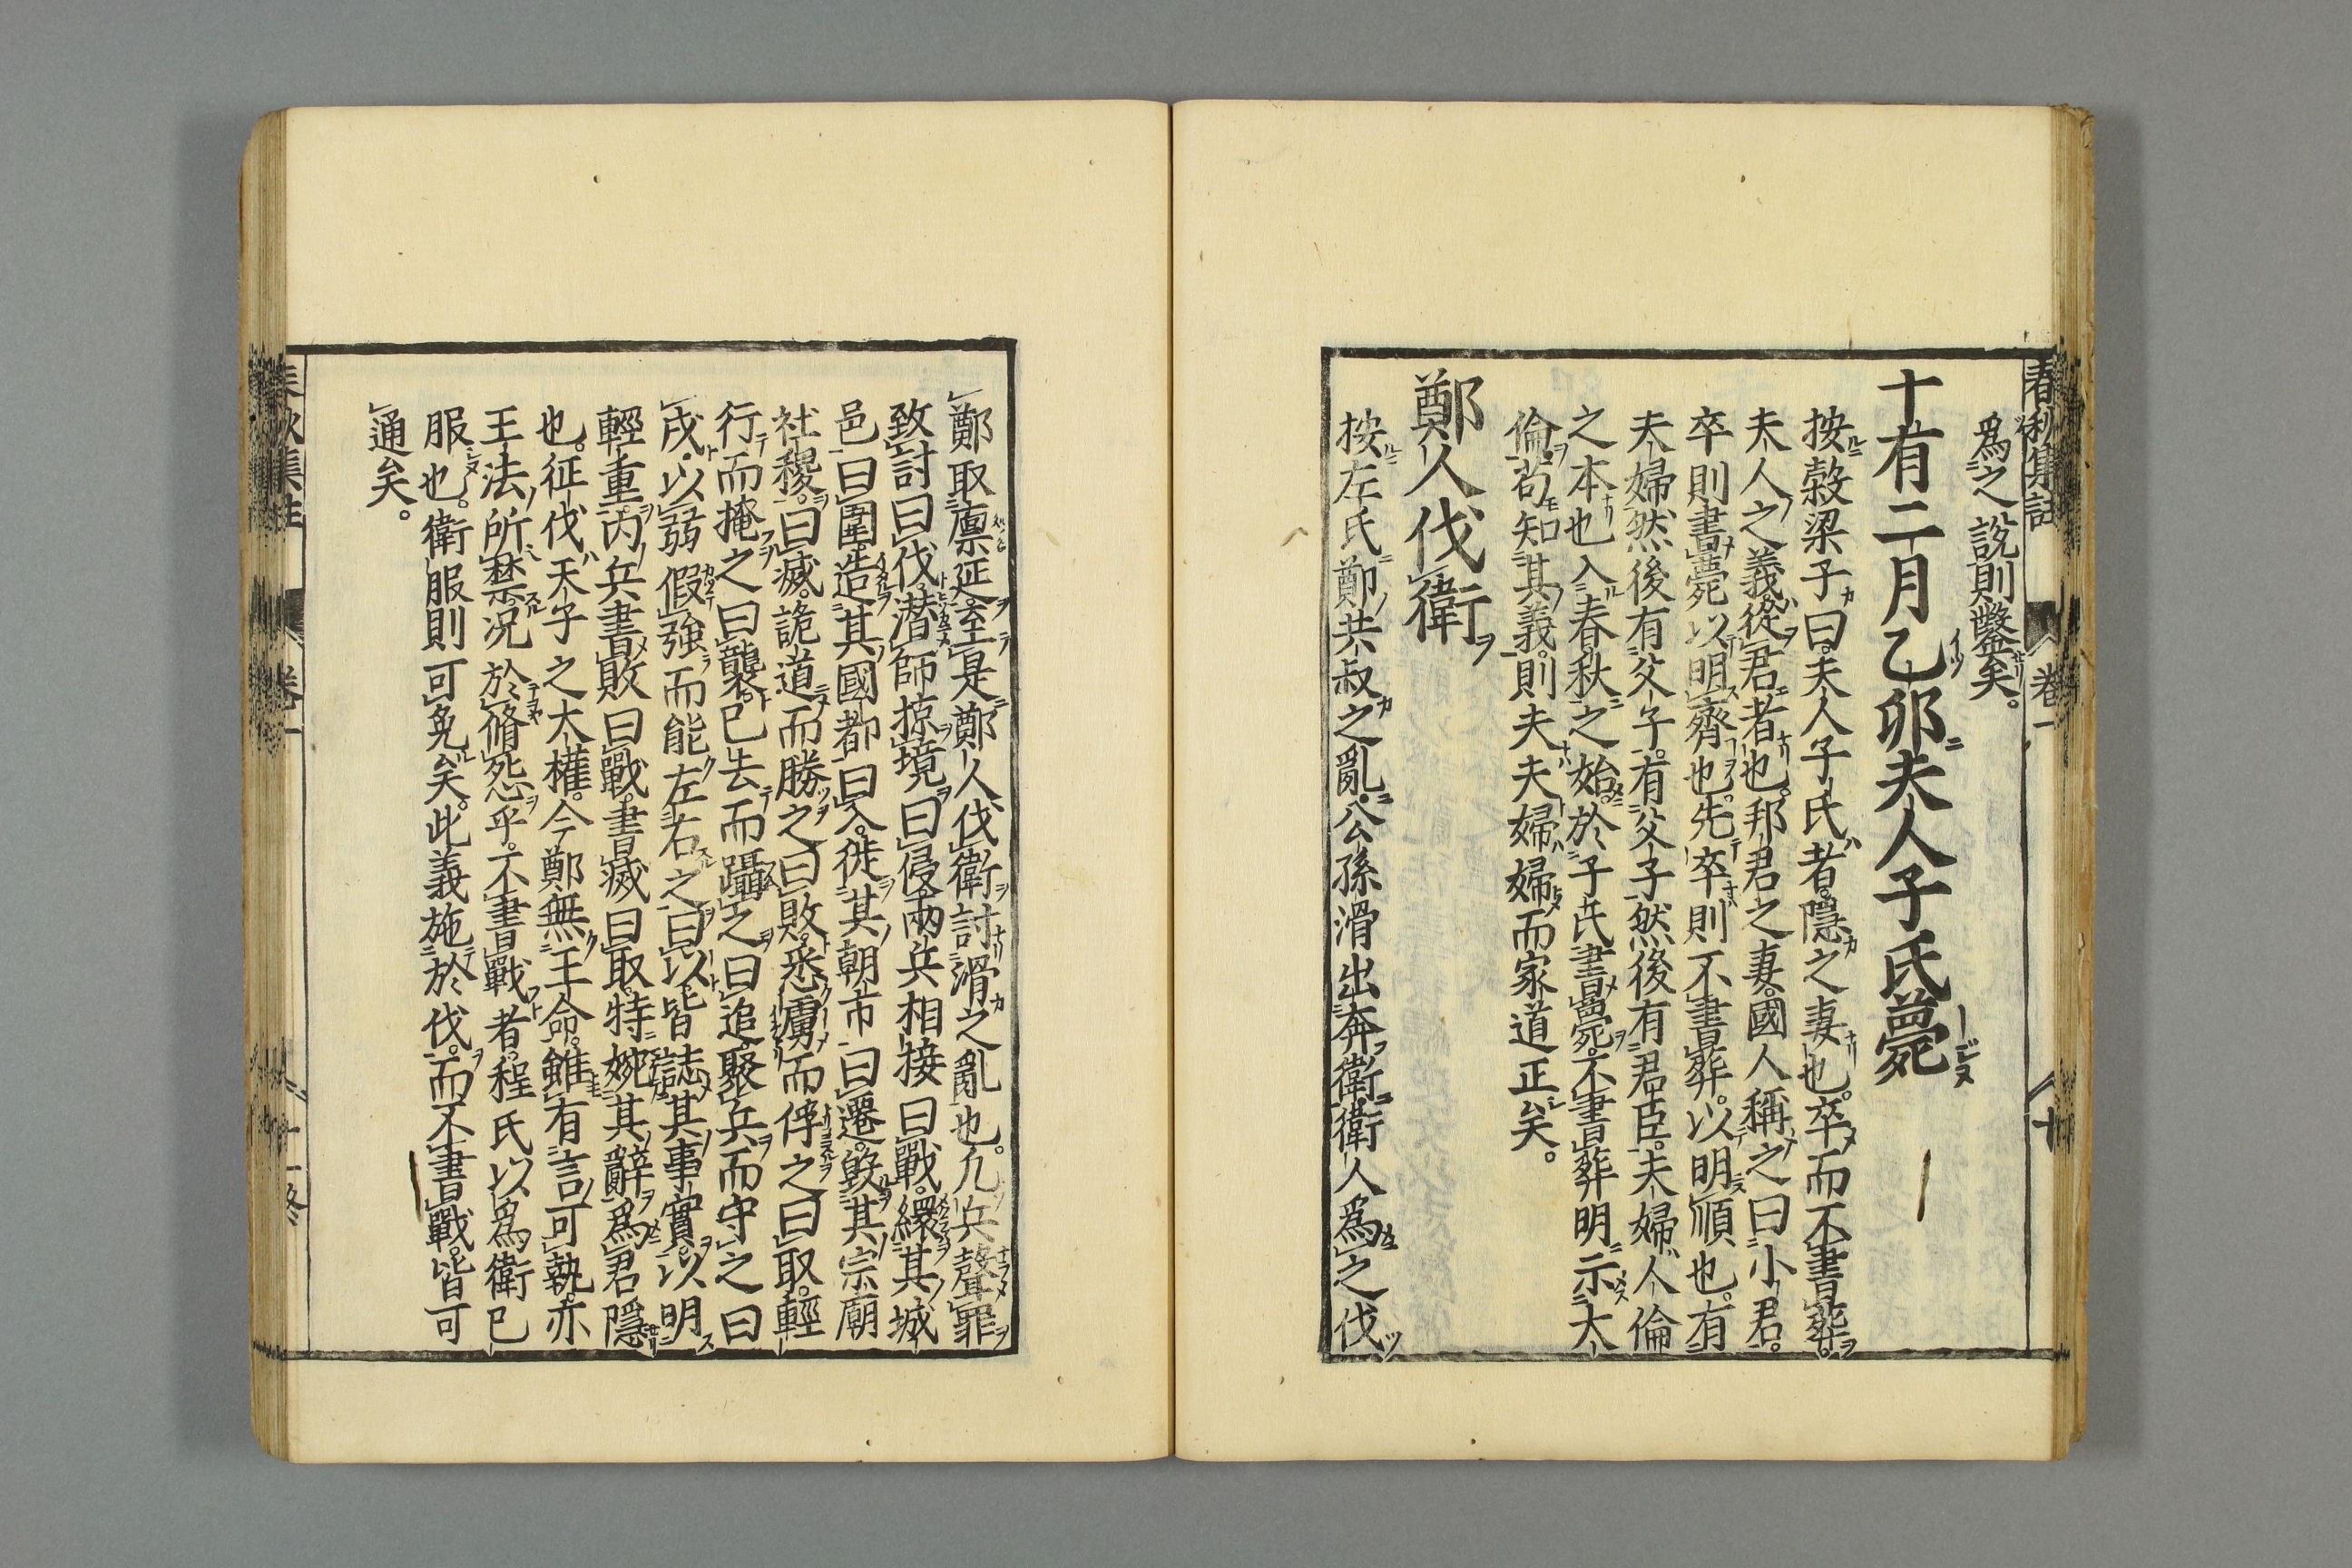 春秋集註 卷一 十
爲之說則鑿矣。
十有二月乙卯夫人子氏薨
按榖梁子曰。夫人子氏者。隱之妻也。卒而不書葬。
夫人之義。從君者也。邦君之妻。國人稱之曰小君。
卒則書薨以明齊也。先卒則不書葬。以明順也。有
夫婦然後有父子。有父子然後有君臣。夫婦人倫
之本也。入春秋之始。於子氏書薨。不書葬明示大
倫。苟知其義。則夫夫婦婦而家道正矣。
鄭人伐衛
按左氏鄭共叔之亂。公孫滑出奔衛衛人爲之伐
鄭取廩延至是鄭人伐衛討滑之亂也。凡兵聲罪
致討曰伐。潜師掠境曰侵兩兵相接曰戰。繯其城
邑曰圍。造其國都曰入。徙其朝市曰遷。毀其宗廟
社稷。曰滅。詭道而勝之曰敗。悉虜而俘之曰取。輕
行而掩之曰襲。已去而躡之曰追。聚兵而守之曰
戍。以弱假強而能左右之曰以。皆誌其事實。以明
輕重。内兵書敗曰戰。書滅曰取。特婉其辭爲君隱
也。征伐天子之大權。今鄭無王命。雖有言可執。亦
王法所禁。况於脩怨乎。不書戰者。程氏以爲衛已
服也。衛服則可免矣。此義施於伐。而不書戰。皆可
通矣。
春秋集註 卷一 十一終